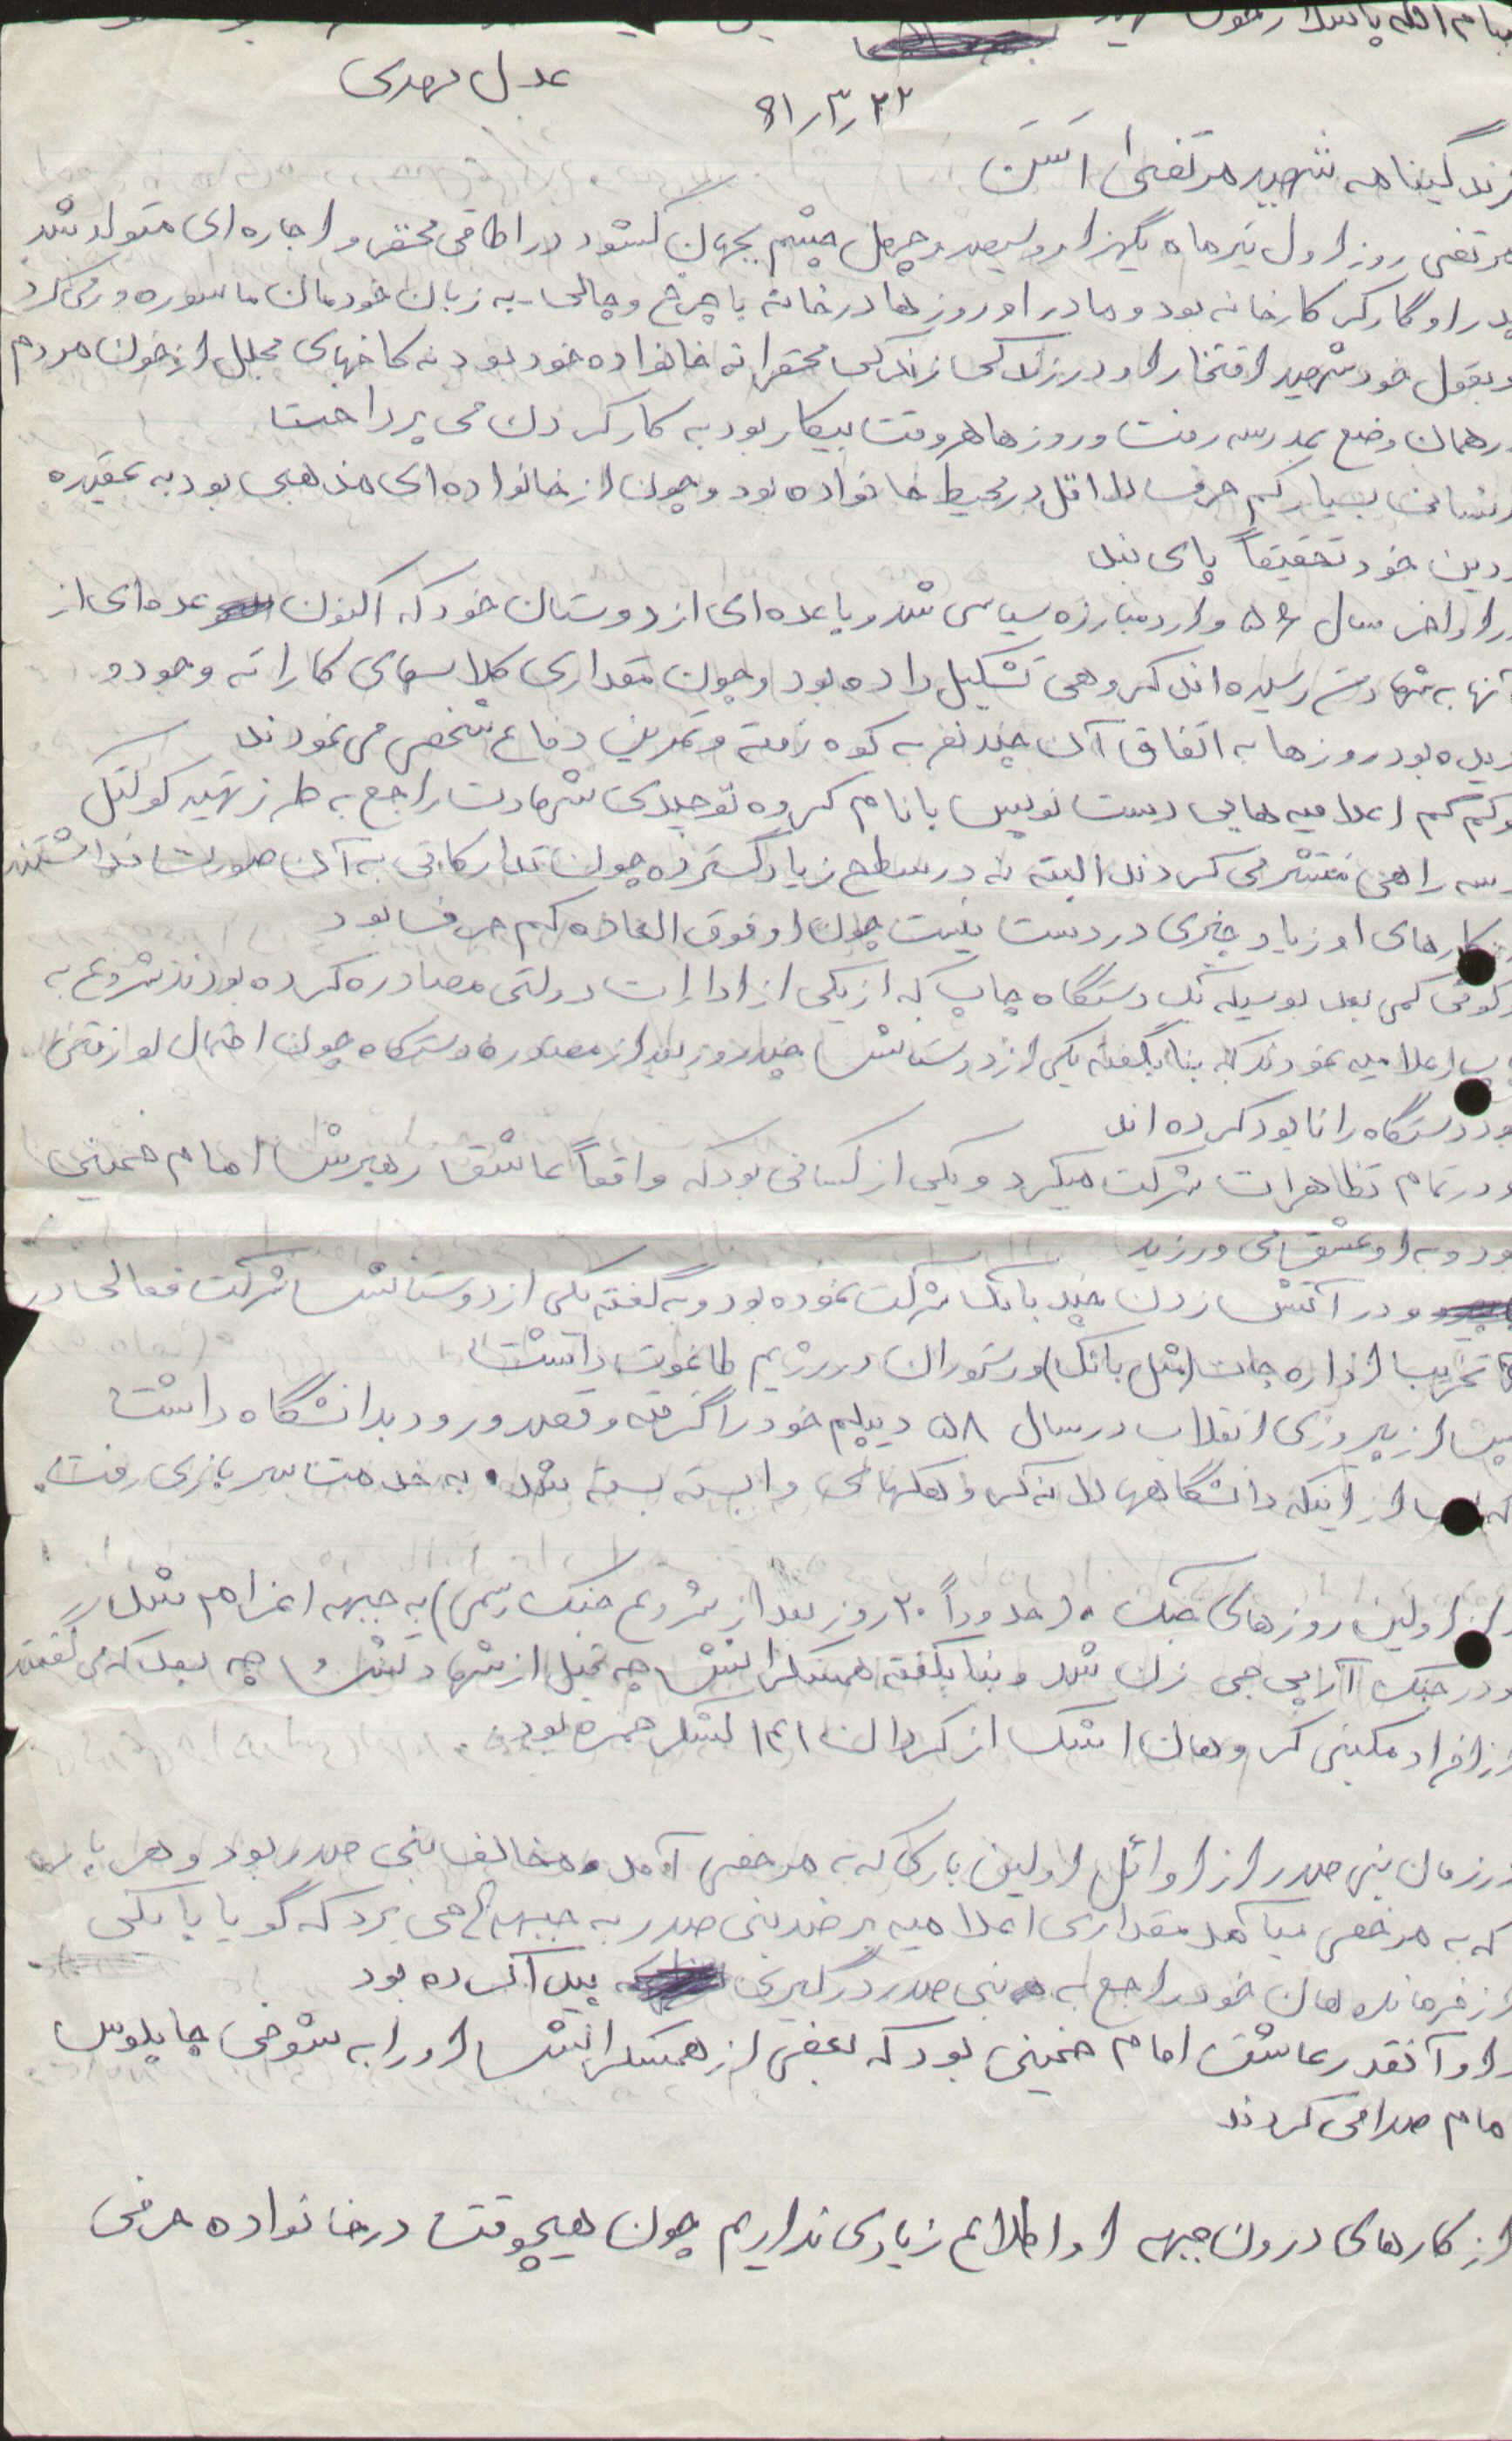 بنام الله پاسدار خون شهید
عدل مهدی
۶۱٫۳٫۲۲
زندگینامه شهید مرتضی
مرتضی روز اول تیرماه یکهزار و سیصد و چهل چشم بجهان گشود در اطاقی محقر و اجاره ای متولد شد
پدر او کارگر کارخانه بود و مادر او روزها در خانه با چرخ و چالی - به زبان خودمان ماسوره ور می کرد
و بقول خود شهید افتخار او در زندگی زندگی محقرانه خانواده خود بود نه کاخهای مجلل از خون مردم
در همان وضع بمدرسه رفت و روزها هر وقت بیکار بود به کار کردن می پرداخت
انسانی بسیار کم حرف لااقل در محیط خانواده بود و چون از خانواده ای مذهبی بود به عقیده
و دین خود تحقیقاً پای بند
در اواخر سال ۵۶ وارد مبارزه سیاسی شد و با عده ای از دوستان خود که اکنون عده ای از
آنها به شهادت رسیده اند گروهی تشکیل داده بود و چون مقداری کلاسهای کاراته وجودو
دیده بود روزها به اتفاق آن چند نفر به کوه رفته و تمرین دفاع شخصی می نمودند
و کم کم اعلامیه هایی دست نویس با نام گروه توحیدی شهادت راجع به طرز تهیه کوکتل
و سه راهی منتشر می کردند البته نه در سطح زیاد گسترده چون تدارکاتی به آن صورت نداشتند
از کارهای او زیاد چیزی در دست نیست چون او فوق العاده کم حرف بود
و گویی کمی بعد بوسیله یک دستگاه چاپ که از یکی از ادارات دولتی مصادره کرده بودند شروع به
چاپ اعلامیه نمودند که بنا بگفته یکی از دوستانش چند روز بعد از مصادره دستگاه چون احتمال لو رفتن
بود دستگاه را نابود کرده اند
و در تمام تظاهرات شرکت میکرد و یکی از کسانی بود که واقعاً عاشق رهبرش امام خمینی
بود و به او عشق می ورزید
و در آتش زدن چند بانک شرکت نموده بود و به گفته یکی از دوستانش شرکت فعالی در
تخریب اداره جات (مثل بانک) و رستوران در رژیم طاغوت داشت
پس از پیروزی انقلاب در سال ۵۸ دیپلم خود را گرفته و قصد ورود بدانشگاه داشت
که پس از اینکه دانشگاهها لانه گروهکهای وابسته بسته شد به خدمت سربازی رفت.
از اولین روزهای جنگ (حدوداً ۲۰ روز بعد از شروع جنگ رسمی) به جبهه اعزام شد
و در جنگ آرپی جی زن شد و بنا بگفته همسنگرانش چه قبل از شهادتش و چه بعد که می گفتند
از افراد مکینی گروهان اشک از گردان ۱۴۱ لشکر حمزه بود.
در زمان بنی صدر از اوائل اولین باری که به مرخصی آمد مخالف بنی صدر بود و هر بار
که به مرخصی میآمد مقداری اعلامیه بر ضد بنی صدر به جبهه می برد که گویا با یکی
از فرمانده هان خود راجع به بنی صدر درگیری پیدا کرده بود
او آنقدر عاشق امام خمینی بود که بعضی از همسنگرانش او را به شوخی چاپلوس
امام صدا می کردند
از کارهای درون جبهه او اطلاع زیادی نداریم چون هیچوقت در خانواده حرفی